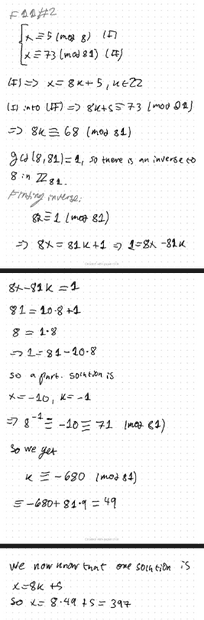 F11#2
x ≡ 5 (mod 8) (I)
x ≡ 73 (mod 81) (II)
(I) => x = 8k + 5, k ∈ ZZ
(I) into (II) => 8k+5 ≡ 73 (mod 81)
=> 8k ≡ 68 (mod 81)
gcd(8,81)=1, so there is an inverse to
8 in Z81.
Finding inverse:
8x ≡ 1 (mod 81)
=> 8x = 81k+1 => 1=8x-81k
8x-81k = 1
81 = 10·8+1
8 = 1·8
=> 1 = 81-10·8
so a part. solution is
x=-10, k=-1
=> 8⁻¹ ≡ -10 ≡ 71 (mod 81)
So we get
k ≡ -680 (mod 81)
≡ -680+81·9 = 49
We now know that one solution is
x=8k+5
so x = 8·49+5 = 397